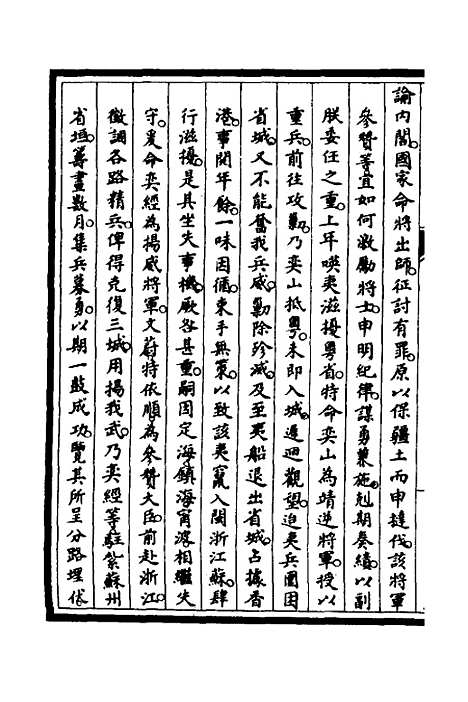 諭內閣國家命將出師征討有罪原以保疆土而申撻伐該將軍
參贊等宜如何激勵將士申明紀律謀勇兼施剋期奏績以副
朕委任之重上年㗸夷滋擾粵省特命奕山為靖逆將軍授以
重兵前往攻勦乃奕山抵粵未即入城遷迴觀望迨夷兵圍困
省城又不能奮我兵威勦除殄滅及至夷船退出省城占據香
港事閱年餘一味因循束手無策以致該夷竄入閩浙江蘇肆
行滋擾是其坐失事機厥咎甚重嗣因定海鎮海甯波相繼失
守爰命奕經為揚威將軍文蔚特依順為參贊大臣前赴浙江
徵調各路精兵俾得克復三城用揚我武乃奕經等駐紮蘇州
省垣籌畫數月集兵募勇以期一鼓成功覽其所呈分路埋伏